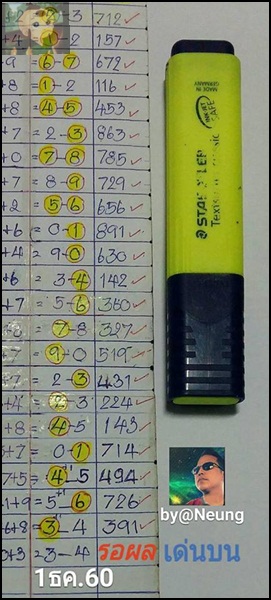 2-3 712 ✓
+4 1-2 157 ✓
+9 = 6-7 672 ✓
+8 = 1-2 116 ✓
+8 = 4-5 453 ✓
+7 = 2-3 863 ✓
+0 = 7-8 785 ✓
+7 = 8-9 729 ✓
+2 = 5-6 656 ✓
+6 = 0-1 891 ✓
+4 = 9-0 630 ✓
+6 = 3-4 142 ✓
+7 = 5-6 360 ✓
7-8 327 ✓
= 9-0 519 ✓
= 2-3 431 ✓
+4 = 2-3 224 ✓
+8 = 4-5 143 ✓
+7 = 0-1 714 ✓
7+5 = 4-5 494 ✓
1+9 = 5-6 726 ✓
6+8 = 3-4 391 ✓
0+3 = 3-4 รอผล เด่นบน
1ธค.60
MADE IN GERMANY
INK JET SAFE
by@Neung